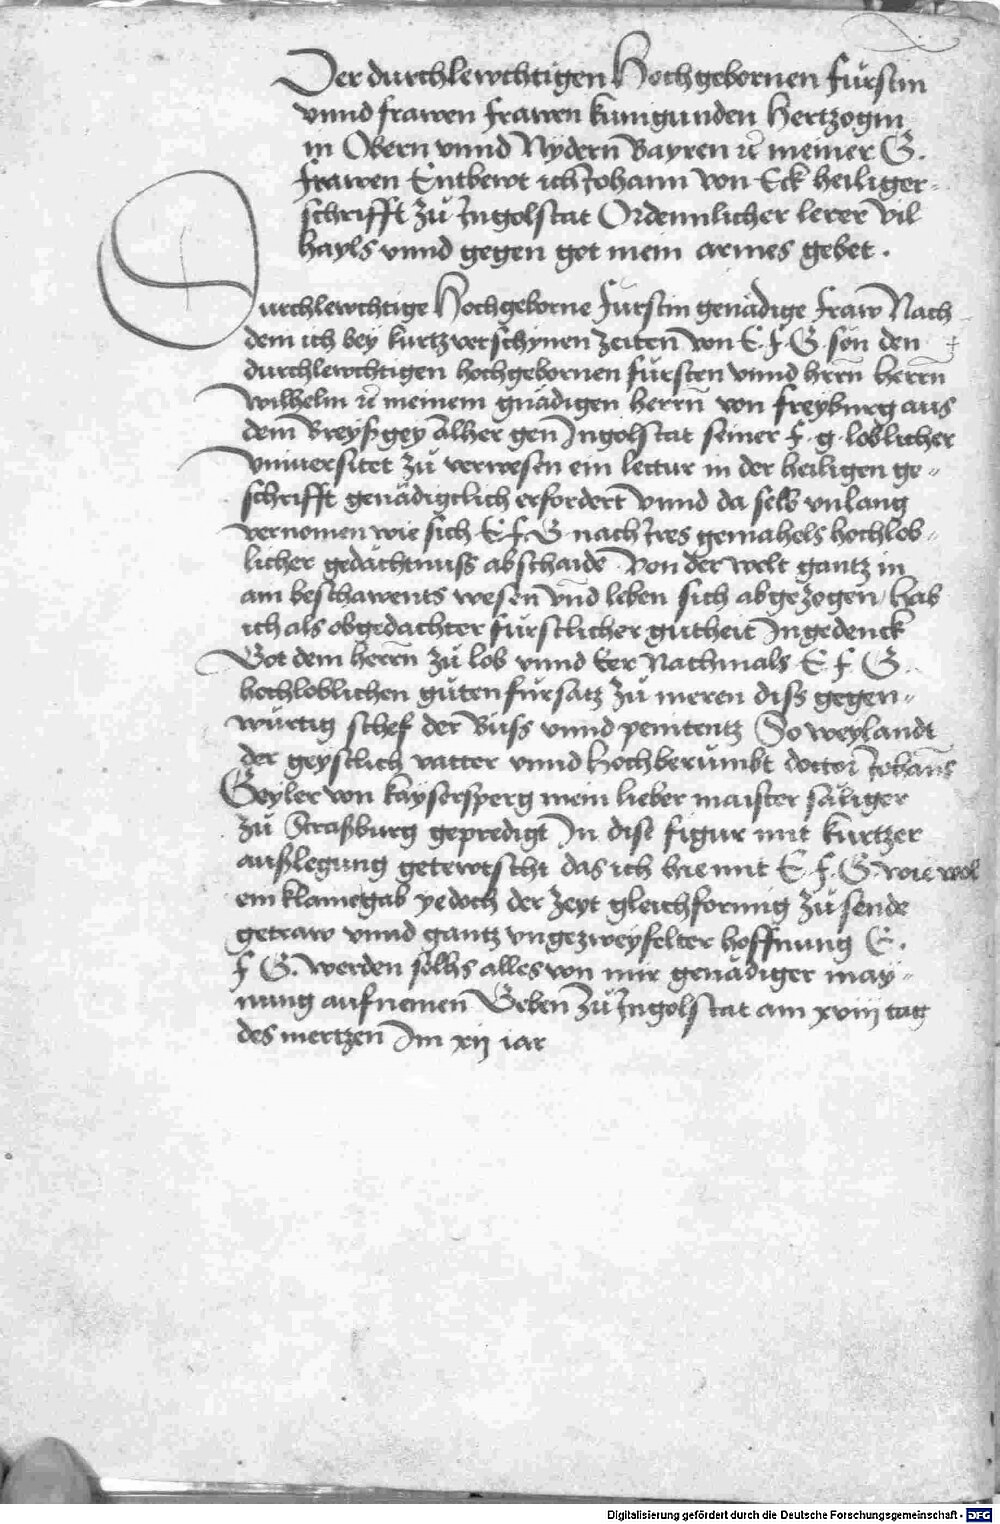 Der durchlewchtigen Hochgebornen fürstin
vnnd frawen frawen kunigunden Hertzogin
in Obern vnnd Nydern Bayren ꝛc meiner G.
frawen Entbewt ich Johann von Eck heiliger
schrifft zů Ingolstat Ordennlicher lerer vil
hayls vnnd gegen got mein armes gebet .
Durchlewchtige Hochgeborne fürstin genädige fraw Nach
dem ich bey kurtzverschynen zeiten von E. f. G. sön den
durchlewchtigen hochgebornen fürsten vnnd hrrn herrn
wilhelm ꝛc meinem gnädigen herrn von freyburg aus
dem Breyßgey alher gen Ingolstat seiner f. g. loblicher
vniuersitet zů verwesen ein lectur in der heiligen ge-
schrifft genädigclich erfordert vnnd da selb vnlang
vernomen wie sich E. f. G nach Jres gemahels hochlob-
licher gedächtnuss abschaide von der welt gantz in
ain beschawents wesen vnd leben sich abgezogen / hab
ich als obgedachter fürstlicher gutheit Ingedenck
Got dem herrn zů lob vnnd Eer Nachmals E. f. G.
hochloblichen gůten fürsatz zů meren diss gegen-
würtig schef der Bůss vnnd penitentz So weylandt
der geystlich vatter vnnd hochberümbt doctor Johans
Geyler von kaysersperg mein lieber maister säliger
zů Straßburg gepredigt In dise figur mit kurtzer
außlegung getewtscht das ich hie mit E. f. G. wie wol
ein klainegab yedoch der zeyt gleichformig zů sende
getraw vnnd gantz vngezweyfelter hoffnung E.
f G. werden sölhs alles von mir genädiger may-
nung aufnemen Geben zů Ingolstat am xviij tag
des mertzen Im xij iar
Digitalisierung gefördert durch die Deutsche Forschungsgemeinschaft - DFG